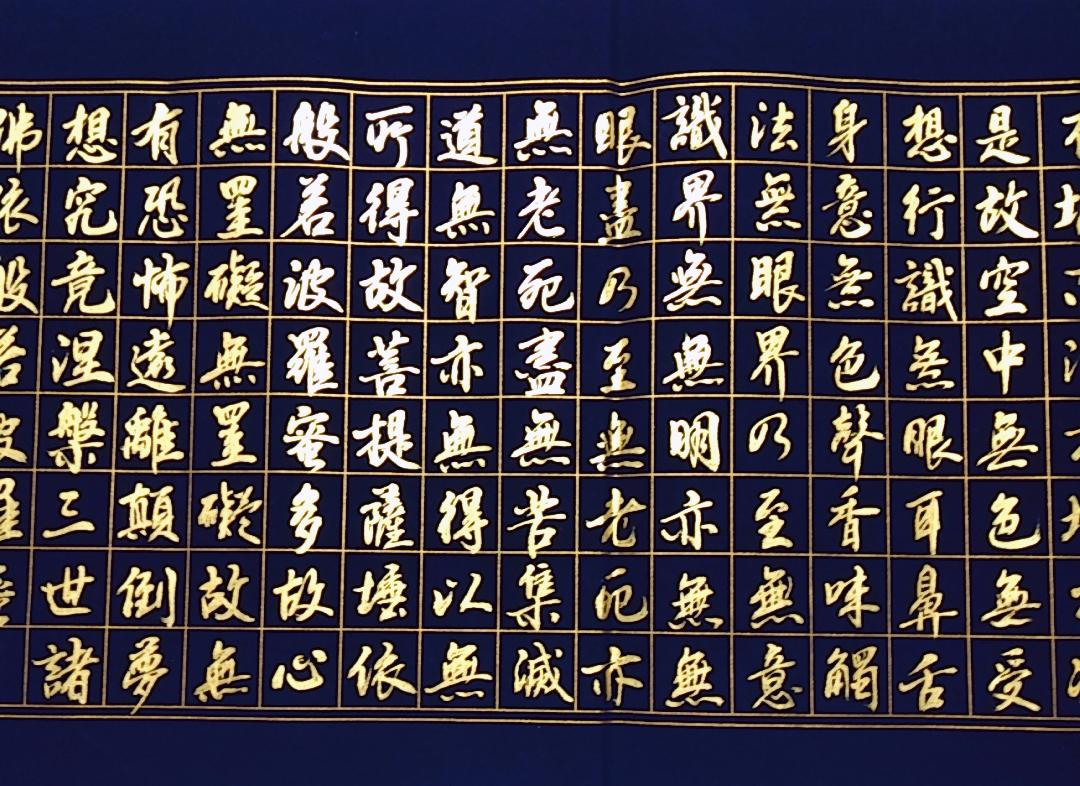 是故空中無色無受
想行識無眼耳鼻舌
身意無色聲香味觸
法無眼界乃至無意
識界無無明亦無無
眼盡乃至無老死亦
無老死盡無苦集滅
道無智亦無得以無
所得故菩提薩埵依
般若波羅蜜多故心
無罣礙無罣礙故無
有恐怖遠離顛倒夢
想究竟涅槃三世諸